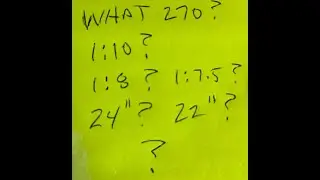 WHAT 270?
1:10?
1:8? 1:7.5?
24"? 22"?
?